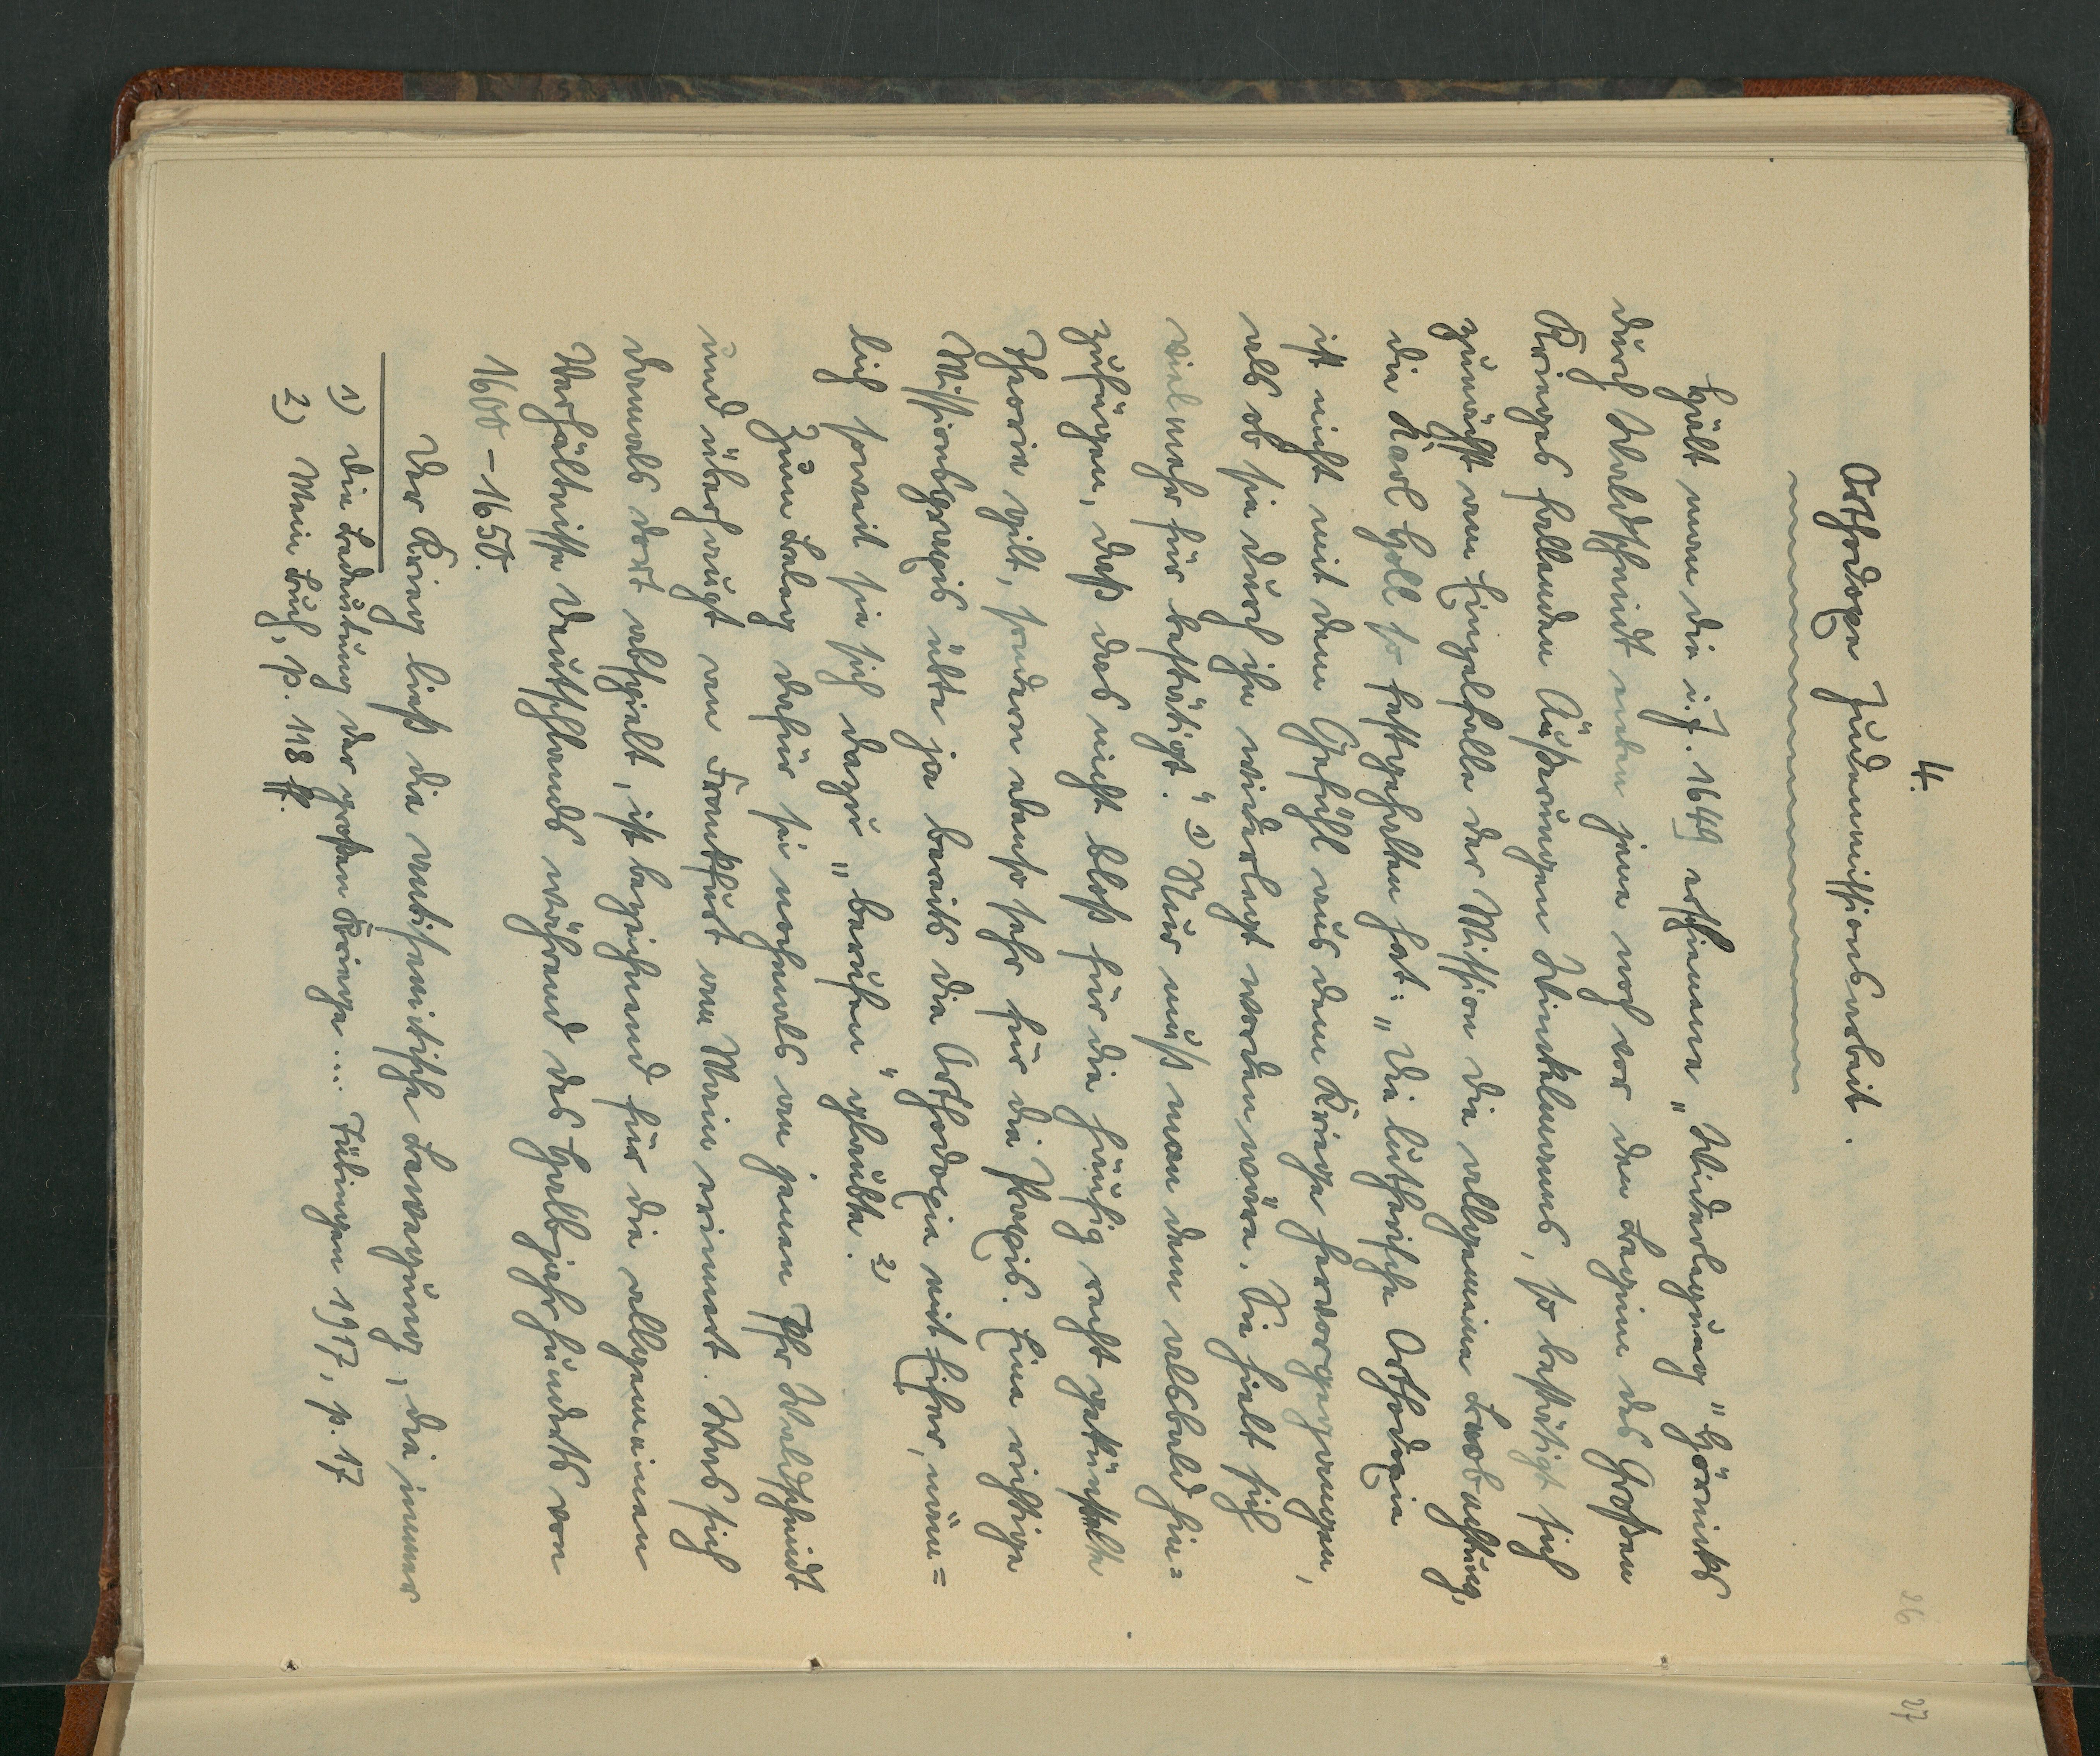 26
4.
Orthodoxe Judenmissionsarbeit.
Hält man die i. J. 1649 erschienene „Widerlegung“ Hörnicks
durch Waldschmidt neben jene noch vor den Beginn des Großen
Krieges fallenden Äußerungen Winkelmanns, so bestätigt sich
zunächst am Einzelfalle der Mission die allgemeine Beobachtung,
die Karl Holl so festgehalten hat: „Die lutherische Orthodoxie
ist nicht mit dem Gefühl aus dem Kriege hervorgegangen,
als ob sie durch ihn widerlegt worden wäre. Sie hielt sich
vielmehr für bestätigt.“ 1) Nur muß man dem alsbald hin=
zufügen, daß das nicht bloß für die häufig recht gekünstelte
Theorie gilt, sondern ebenso sehr für die Praxis. Eine richtige
Missionspraxis übte ja bereits die Orthodoxie mit Eifer, näm=
lich soweit sie sich dazu „berufen“ glaubte. 2)
Zum Beleg dafür sei nochmals an jenen Ehr Waldschmidt
und überhaupt an Frankfurt am Main erinnert. Was sich
damals dort abspielt, ist bezeichnend für die allgemeinen
Verhältnisse Deutschlands während des Halbjahrhunderts von
1600 - 1650.
Der Krieg ließ die antisemitische Bewegung, die immer
1) Die Bedeutung der großen Kriege ... Tübingen 1917, p. 17
2) Mein Buch, p. 118 ff.
27